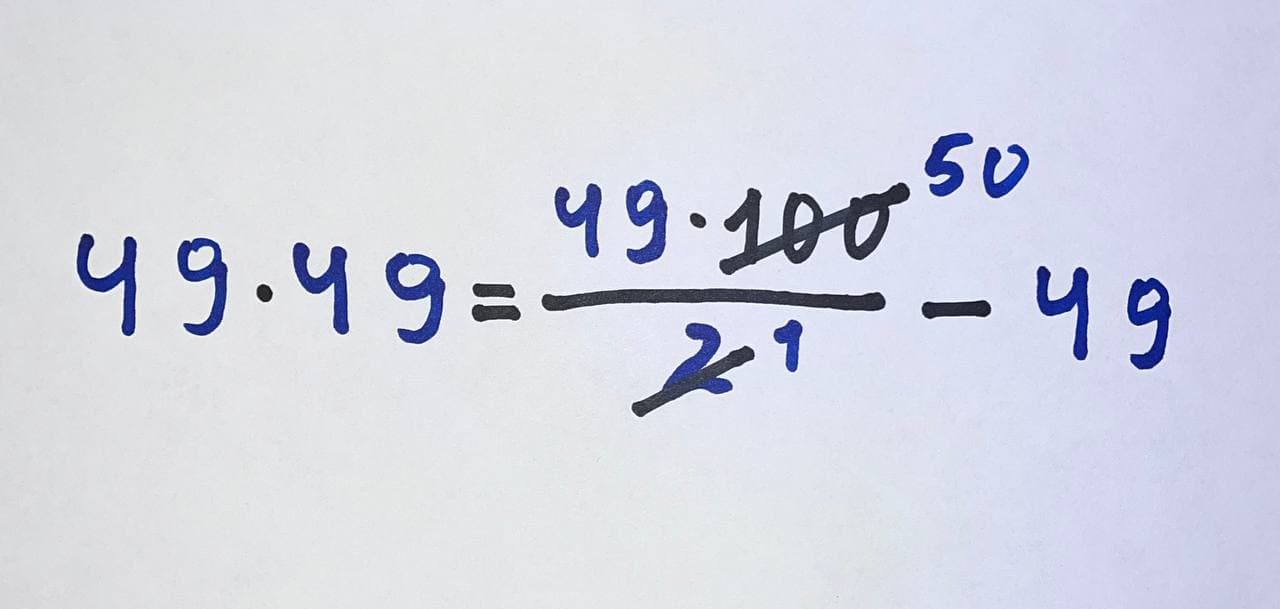 49·49 = 49·100 50 / 2 1 − 49